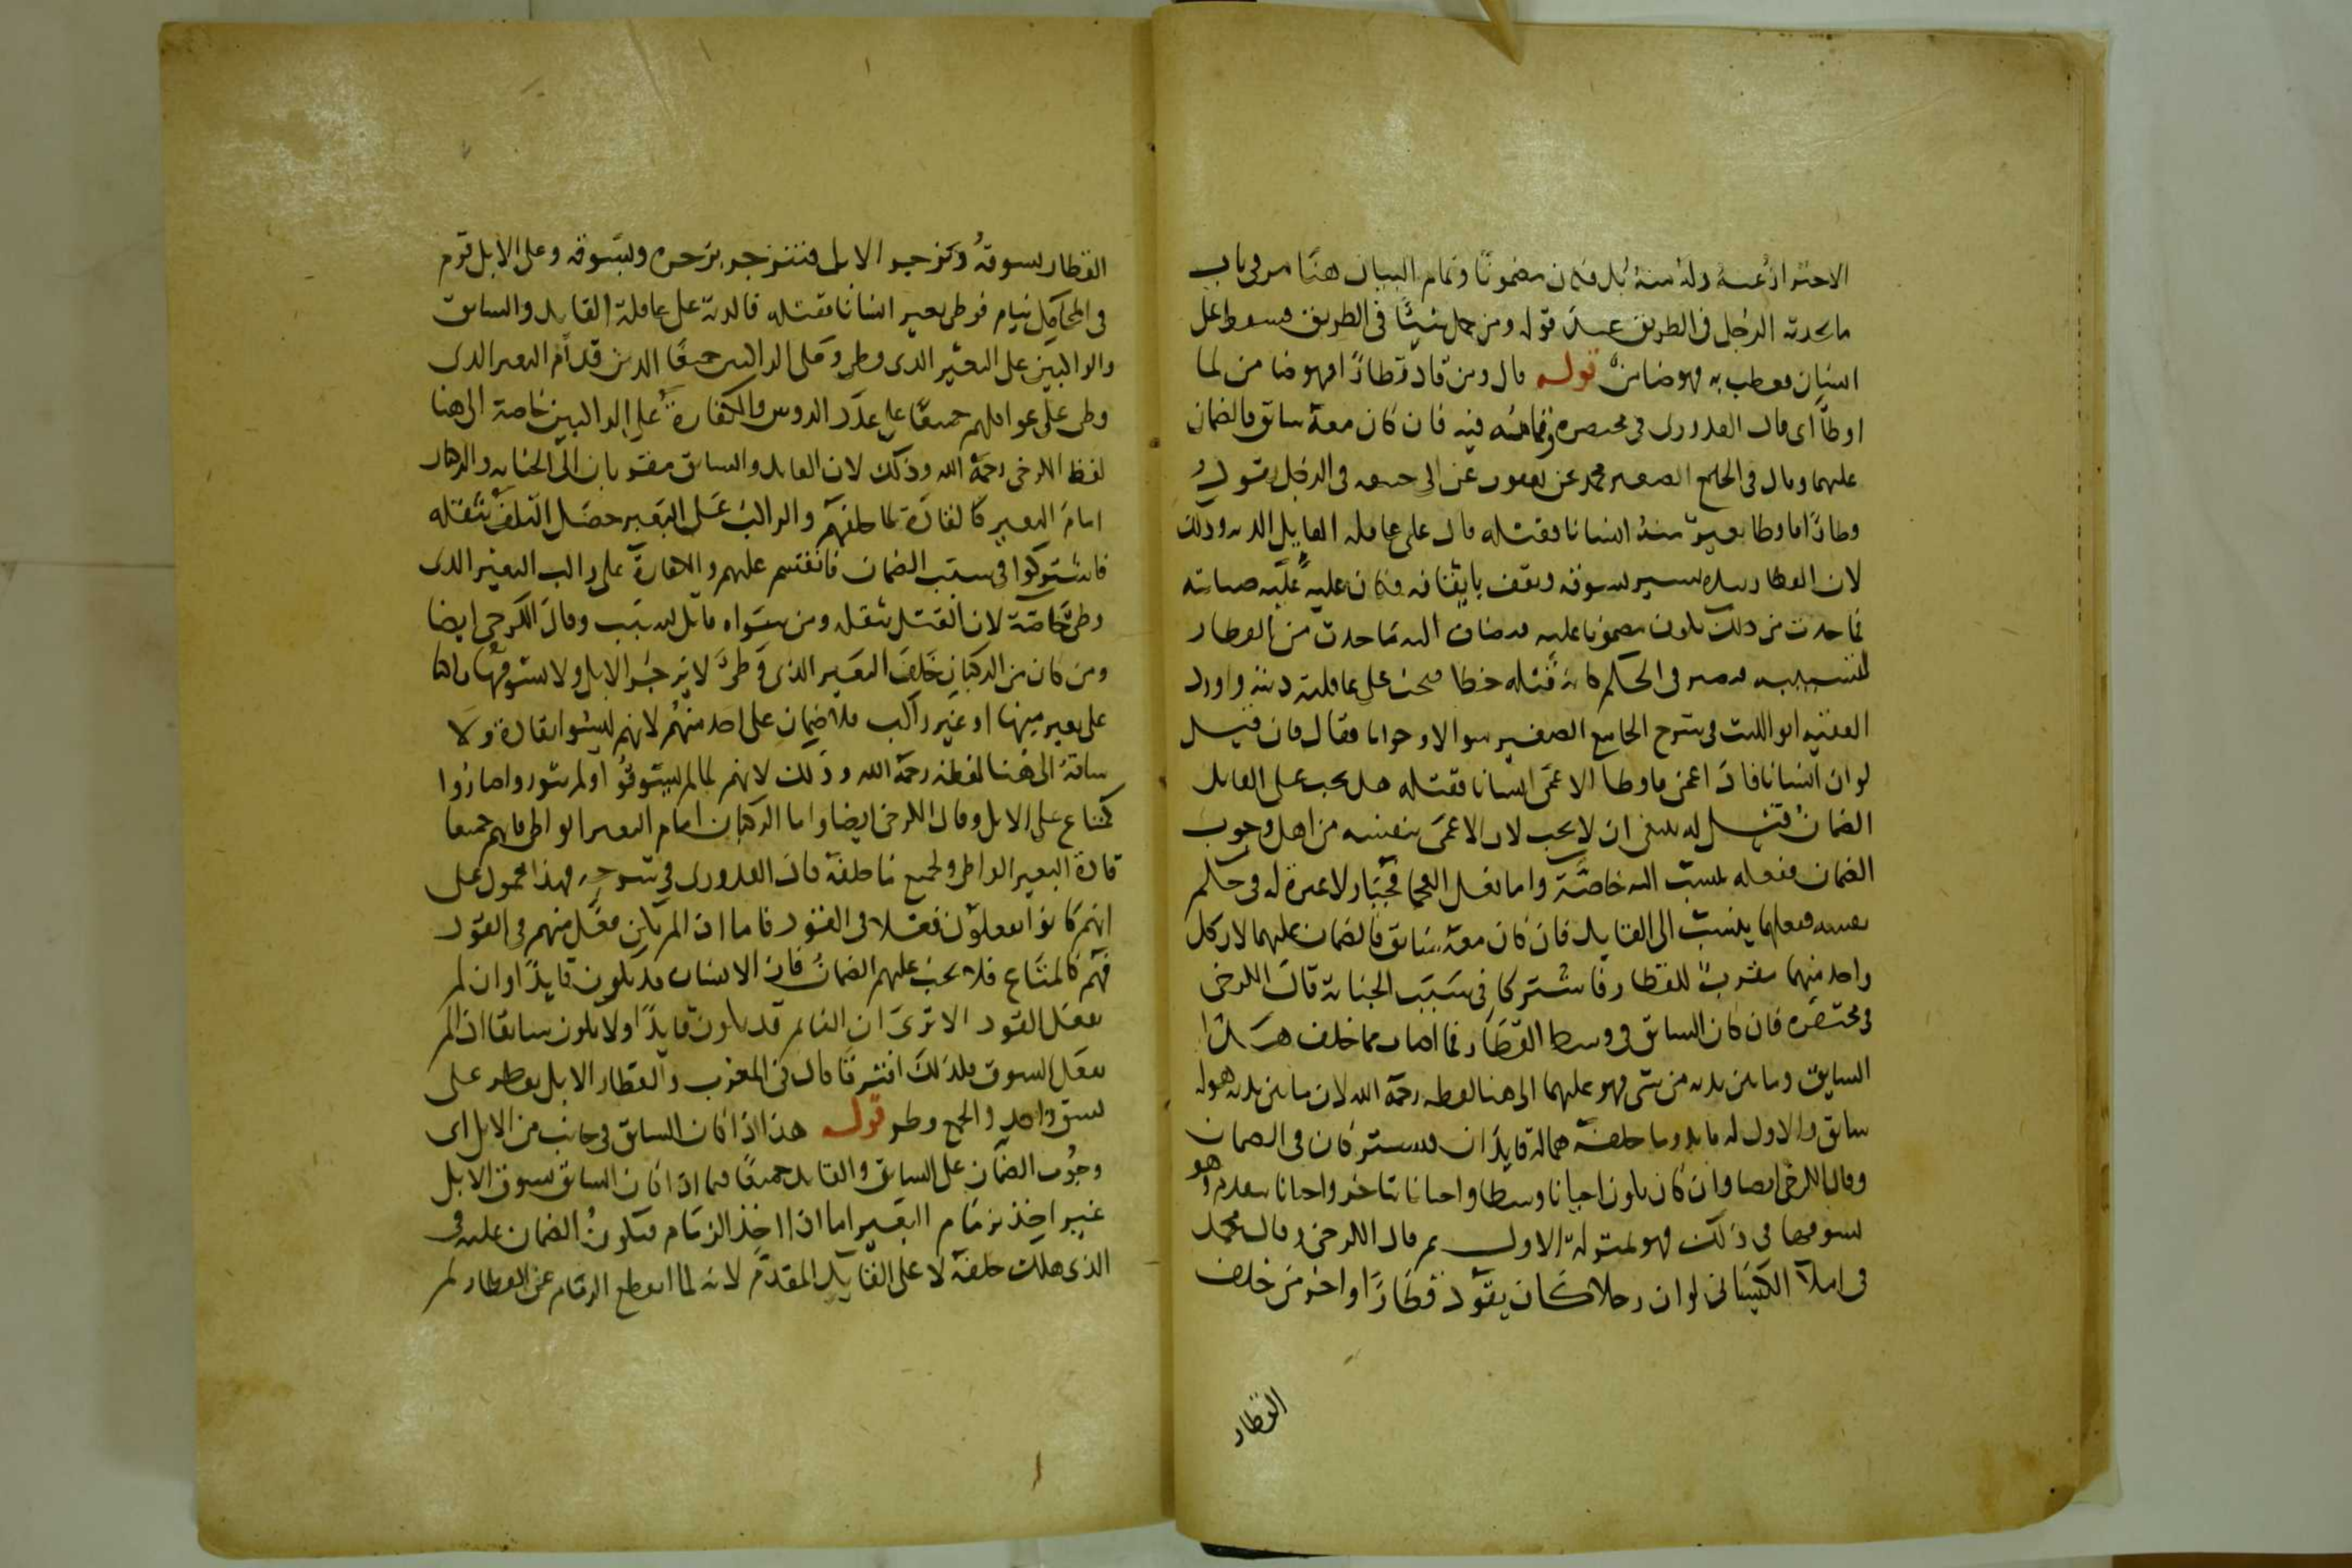 الاحتراز عنه وله منه بد فكان مضمونا وتمام البيان هنا مر في باب
ما يحدثه الرجل في الطريق عند قوله ومن حمل شيئا في الطريق فسقط على
انسان فعطب به فهو ضامن قوله قال ومن قاد قطارا فهو ضامن لما
اوطأ اي قال القدوري في مختصره وتمامه فيه فان كان معه سائق فالضمان
عليهما وقال في الجامع الصغير محمد عن يعقوب عن ابي حنيفه في الرجل يقود
قطارا فاوطا بعير منه انسانا فقتله قال على عاقله القايد الديه وذلك
لان القطار بيده يسير بسوقه ويقف بايقافه فكان عليه صيانته
فما حدث من ذلك يكون مضمونا عليه فيضاف اليه ما حدث من القطار
لتسبيبه فيصير في الحكم كانه قتله خطا فيجب على عاقلته ديته واورد
الفقيه ابو الليث في شرح الجامع الصغير سوالا وجوابا فقال فان قيل
لو ان انسانا قاد اعمى فاوطا الاعمى انسانا فقتله هل يجب على القايد
الضمان قيل له ينبغي ان لا يجب لان الاعمى بنفسه من اهل وجوب
الضمان ففعله ينسب اليه خاصة واما فعل العجما فجبار لا عبرة له في حكم
نفسه ففعلها ينسب الى القايد فان كان معه سايق فالضمان عليهما لان كل
واحد منهما مقرب للقطار فاشتركا في سبب الجناية قال الكرخي
في مختصره فان كان السائق في وسط القطار فما اصاب مما خلف هذا
السايق وما بين يديه من شي فهو عليهما الى هنا لفظه رحمه الله لان ما بين يديه هو له
سائق والاول له قايد وما خلفه هما له قايدان فيشتركان في الضمان
وقال الكرخي ايضا وان كان يكون احيانا وسطا واحيانا يتاخر واحيانا يتقدم وهو
يسوقها في ذلك فهو بمنزلة الاول ثم قال الكرخي وقال محمد
في املآ الكيساني لو ان رجلا كان يقود قطارا واخر من خلف
القطار
القطار يسوقه ويزجر الابل فتنزجر بزجره ويسوقه وعلى الابل قوم
في المحامل نيام فوطى بعير انسانا فقتله فالدية على عاقلة القايد والسائق
والراكبين على البعير الذي وطى وعلى الراكبين جميعا الذين قدام البعير الذي
وطى على عواقلهم جميعا على عدد الروس والكفارة على الراكبين خاصة الى هنا
لفظ الكرخي رحمه الله وذلك لان القايد والسائق مقربان الى الجنايه والركبان
امام البعير كالقادة لما خلفهم والراكب على البعير حصل التلف بثقله
فاشتركوا في سبب الضمان فانقسم عليهم والكفارة على راكب البعير الذي
وطى خاصة لان القتل بثقله ومن سواه قاتل بسبب وقال الكرخي ايضا
ومن كان من الركبان خلف البعير الذي وطى لا يزجر الابل ولا يسوقها راكبا
على بعير منها او غير راكب فلا ضمان على احد منهم لانهم ليسوا بقادة ولا
ساقة الى هنا لفظه رحمه الله وذلك لانهم لما لم يسوقوا ولم يقودوا صاروا
كمتاع على الابل وقال الكرخي ايضا واما الركبان امام البعير الواطي فانهم جميعا
قادة البعير الواطي ولجميع ما خلفه قال القدوري في شرحه وهذا محمول على
انهم كانوا يفعلون فعلا في القود فاما اذا لم يكن فعل منهم في القود
فهم كالمتاع فلا يجب عليهم الضمان فان الانسان قد يكون قايدا وان لم
يفعل القود الا ترى ان النايم قد يكون قايدا ولا يكون سائقا اذا لم
يفعل السوق فلذلك افترقا قال في المغرب والقطار الابل يقطر على
نسق واحد والجمع قطر قوله هذا اذا كان السائق في جانب من الابل اي
وجوب الضمان على السايق والقايد جميعا فيما اذا كان السائق يسوق الابل
غير اخذ بزمام البعير اما اذا اخذ الزمام فيكون الضمان عليه في
الذي هلك خلفه لا على القايد المقدم لانه لما انقطع الزمام عن القطار لم